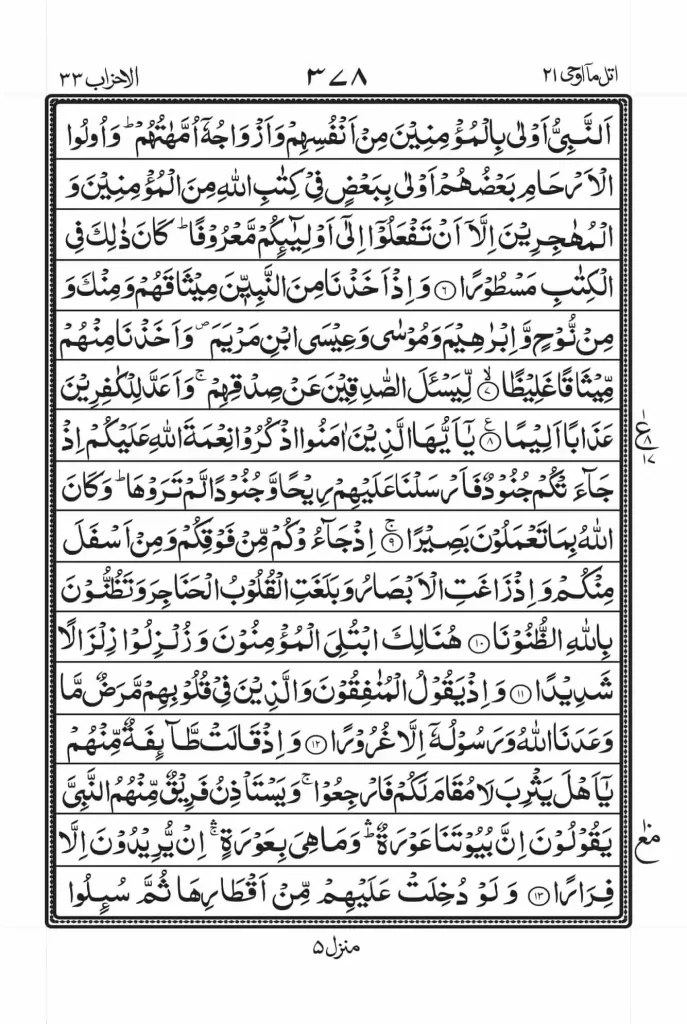 اتل ماۤ اوحی ٢١
٣٧٨
الاحزاب ٣٣
اَلنَّبِيُّ اَوْلٰى بِالْمُؤْمِنِيْنَ مِنْ اَنْفُسِهِمْ وَاَزْوَاجُهٗۤ اُمَّهٰتُهُمْ ؕ وَاُولُوا
الْاَرْحَامِ بَعْضُهُمْ اَوْلٰى بِبَعْضٍ فِيْ كِتٰبِ اللّٰهِ مِنَ الْمُؤْمِنِيْنَ وَ
الْمُهٰجِرِيْنَ اِلَّاۤ اَنْ تَفْعَلُوْۤا اِلٰۤى اَوْلِيٰٓئِكُمْ مَّعْرُوْفًا ؕ كَانَ ذٰلِكَ فِى
الْكِتٰبِ مَسْطُوْرًا ﴿٦﴾ وَاِذْ اَخَذْنَا مِنَ النَّبِيّٖنَ مِيْثَاقَهُمْ وَمِنْكَ وَ
مِنْ نُّوْحٍ وَّاِبْرٰهِيْمَ وَمُوْسٰى وَعِيْسَى ابْنِ مَرْيَمَ ۪ وَاَخَذْنَا مِنْهُمْ
مِّيْثَاقًا غَلِيْظًا ۙ﴿٧﴾ لِّيَسْـَٔلَ الصّٰدِقِيْنَ عَنْ صِدْقِهِمْ ۚ وَاَعَدَّ لِلْكٰفِرِيْنَ
عَذَابًا اَلِيْمًا ﴿٨﴾ع يٰۤاَيُّهَا الَّذِيْنَ اٰمَنُوا اذْكُرُوْا نِعْمَةَ اللّٰهِ عَلَيْكُمْ اِذْ
ع
٨
١٧
جَآءَتْكُمْ جُنُوْدٌ فَاَرْسَلْنَا عَلَيْهِمْ رِيْحًا وَّجُنُوْدًا لَّمْ تَرَوْهَا ؕ وَكَانَ
اللّٰهُ بِمَا تَعْمَلُوْنَ بَصِيْرًا ۚ﴿٩﴾ اِذْ جَآءُوْكُمْ مِّنْ فَوْقِكُمْ وَمِنْ اَسْفَلَ
مِنْكُمْ وَاِذْ زَاغَتِ الْاَبْصَارُ وَبَلَغَتِ الْقُلُوْبُ الْحَنَاجِرَ وَتَظُنُّوْنَ
بِاللّٰهِ الظُّنُوْنَا ﴿١٠﴾ هُنَالِكَ ابْتُلِىَ الْمُؤْمِنُوْنَ وَزُلْزِلُوْا زِلْزَالًا
شَدِيْدًا ﴿١١﴾ وَاِذْ يَقُوْلُ الْمُنٰفِقُوْنَ وَالَّذِيْنَ فِىْ قُلُوْبِهِمْ مَّرَضٌ مَّا
وَعَدَنَا اللّٰهُ وَرَسُوْلُهٗۤ اِلَّا غُرُوْرًا ﴿١٢﴾ وَاِذْ قَالَتْ طَّآئِفَةٌ مِّنْهُمْ
يٰۤاَهْلَ يَثْرِبَ لَا مُقَامَ لَكُمْ فَارْجِعُوْا ۚ وَيَسْتَاْذِنُ فَرِيْقٌ مِّنْهُمُ النَّبِىَّ
يَقُوْلُوْنَ اِنَّ بُيُوْتَنَا عَوْرَةٌ ؕۛ وَمَا هِىَ بِعَوْرَةٍ ۚۛ اِنْ يُّرِيْدُوْنَ اِلَّا
مع
فِرَارًا ﴿١٣﴾ وَلَوْ دُخِلَتْ عَلَيْهِمْ مِّنْ اَقْطَارِهَا ثُمَّ سُئِلُوا
منزل ٥